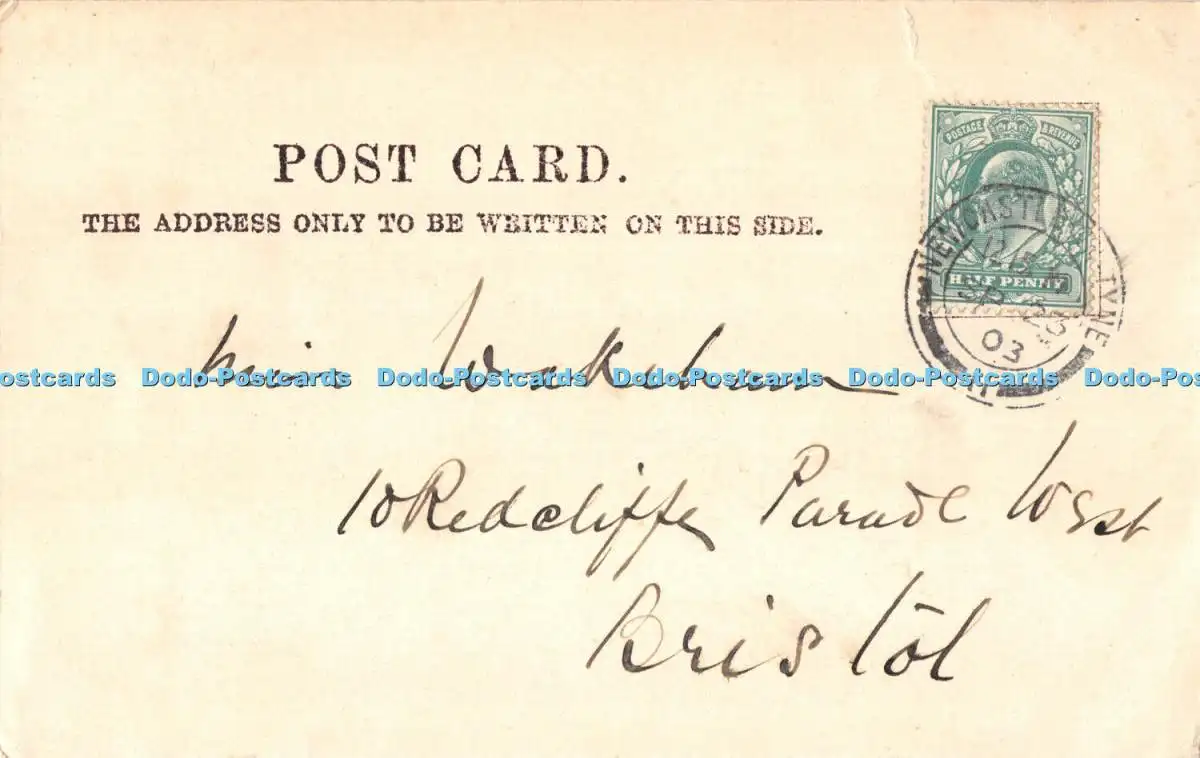 POST CARD.
THE ADDRESS ONLY TO BE WRITTEN ON THIS SIDE.
POSTAGE & REVENUE
HALF PENNY
NEWCASTLE TYNE
SP 23
03
1
Miss Wakeham
ostcards Dodo-Postcards Dodo-Postcards Dodo-Postcards Dodo-Postcards Dodo-Pos
10 Redcliffe Parade West
Bristol